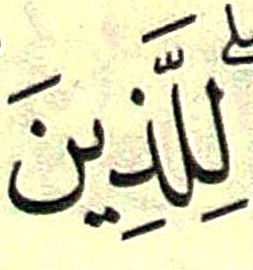 لِلَّذِينَ